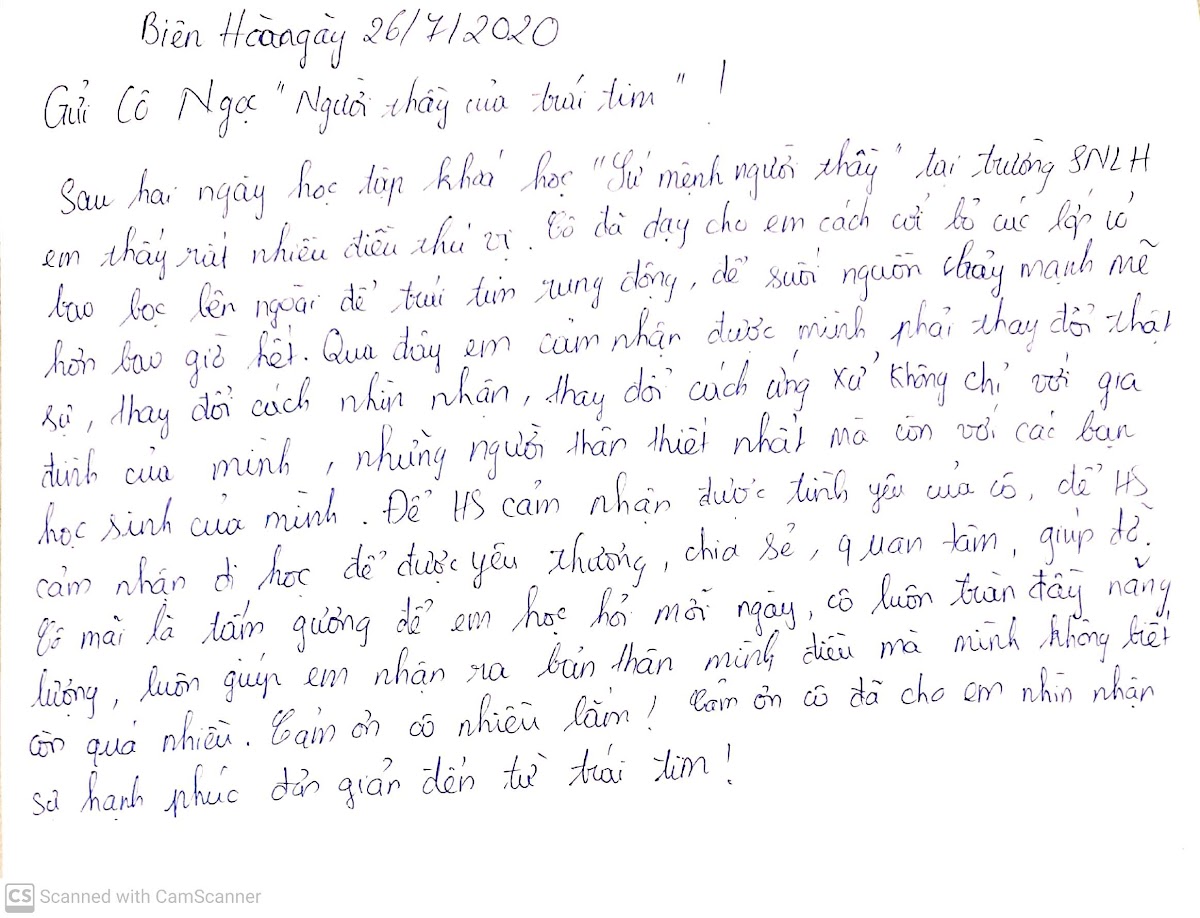 Biên Hòa ngày 26/7/2020
Gửi Cô Ngọc "Người thầy của trái tim" !
Sau hai ngày học tập khoá học "Sứ mệnh người thầy" tại trường SNLH
em thấy rất nhiều điều thú vị. Cô đã dạy cho em cách cởi bỏ các lớp vỏ
bao bọc bên ngoài để trái tim rung động, để suối nguồn chảy mạnh mẽ
hơn bao giờ hết. Qua đây em cảm nhận được mình phải thay đổi thật
sự, thay đổi cách nhìn nhận, thay đổi cách ứng xử không chỉ với gia
đình của mình, những người thân thiết nhất mà còn với các bạn
học sinh của mình. Để HS cảm nhận được tình yêu của cô, để HS
cảm nhận đi học để được yêu thương, chia sẻ, quan tâm, giúp đỡ.
Cô mãi là tấm gương để em học hỏi mỗi ngày, cô luôn tràn đầy năng
lượng, luôn giúp em nhận ra bản thân mình điều mà mình không biết
còn quá nhiều. Cảm ơn cô nhiều lắm! Cảm ơn cô đã cho em nhìn nhận
sự hạnh phúc đơn giản đến từ trái tim!
CS Scanned with CamScanner